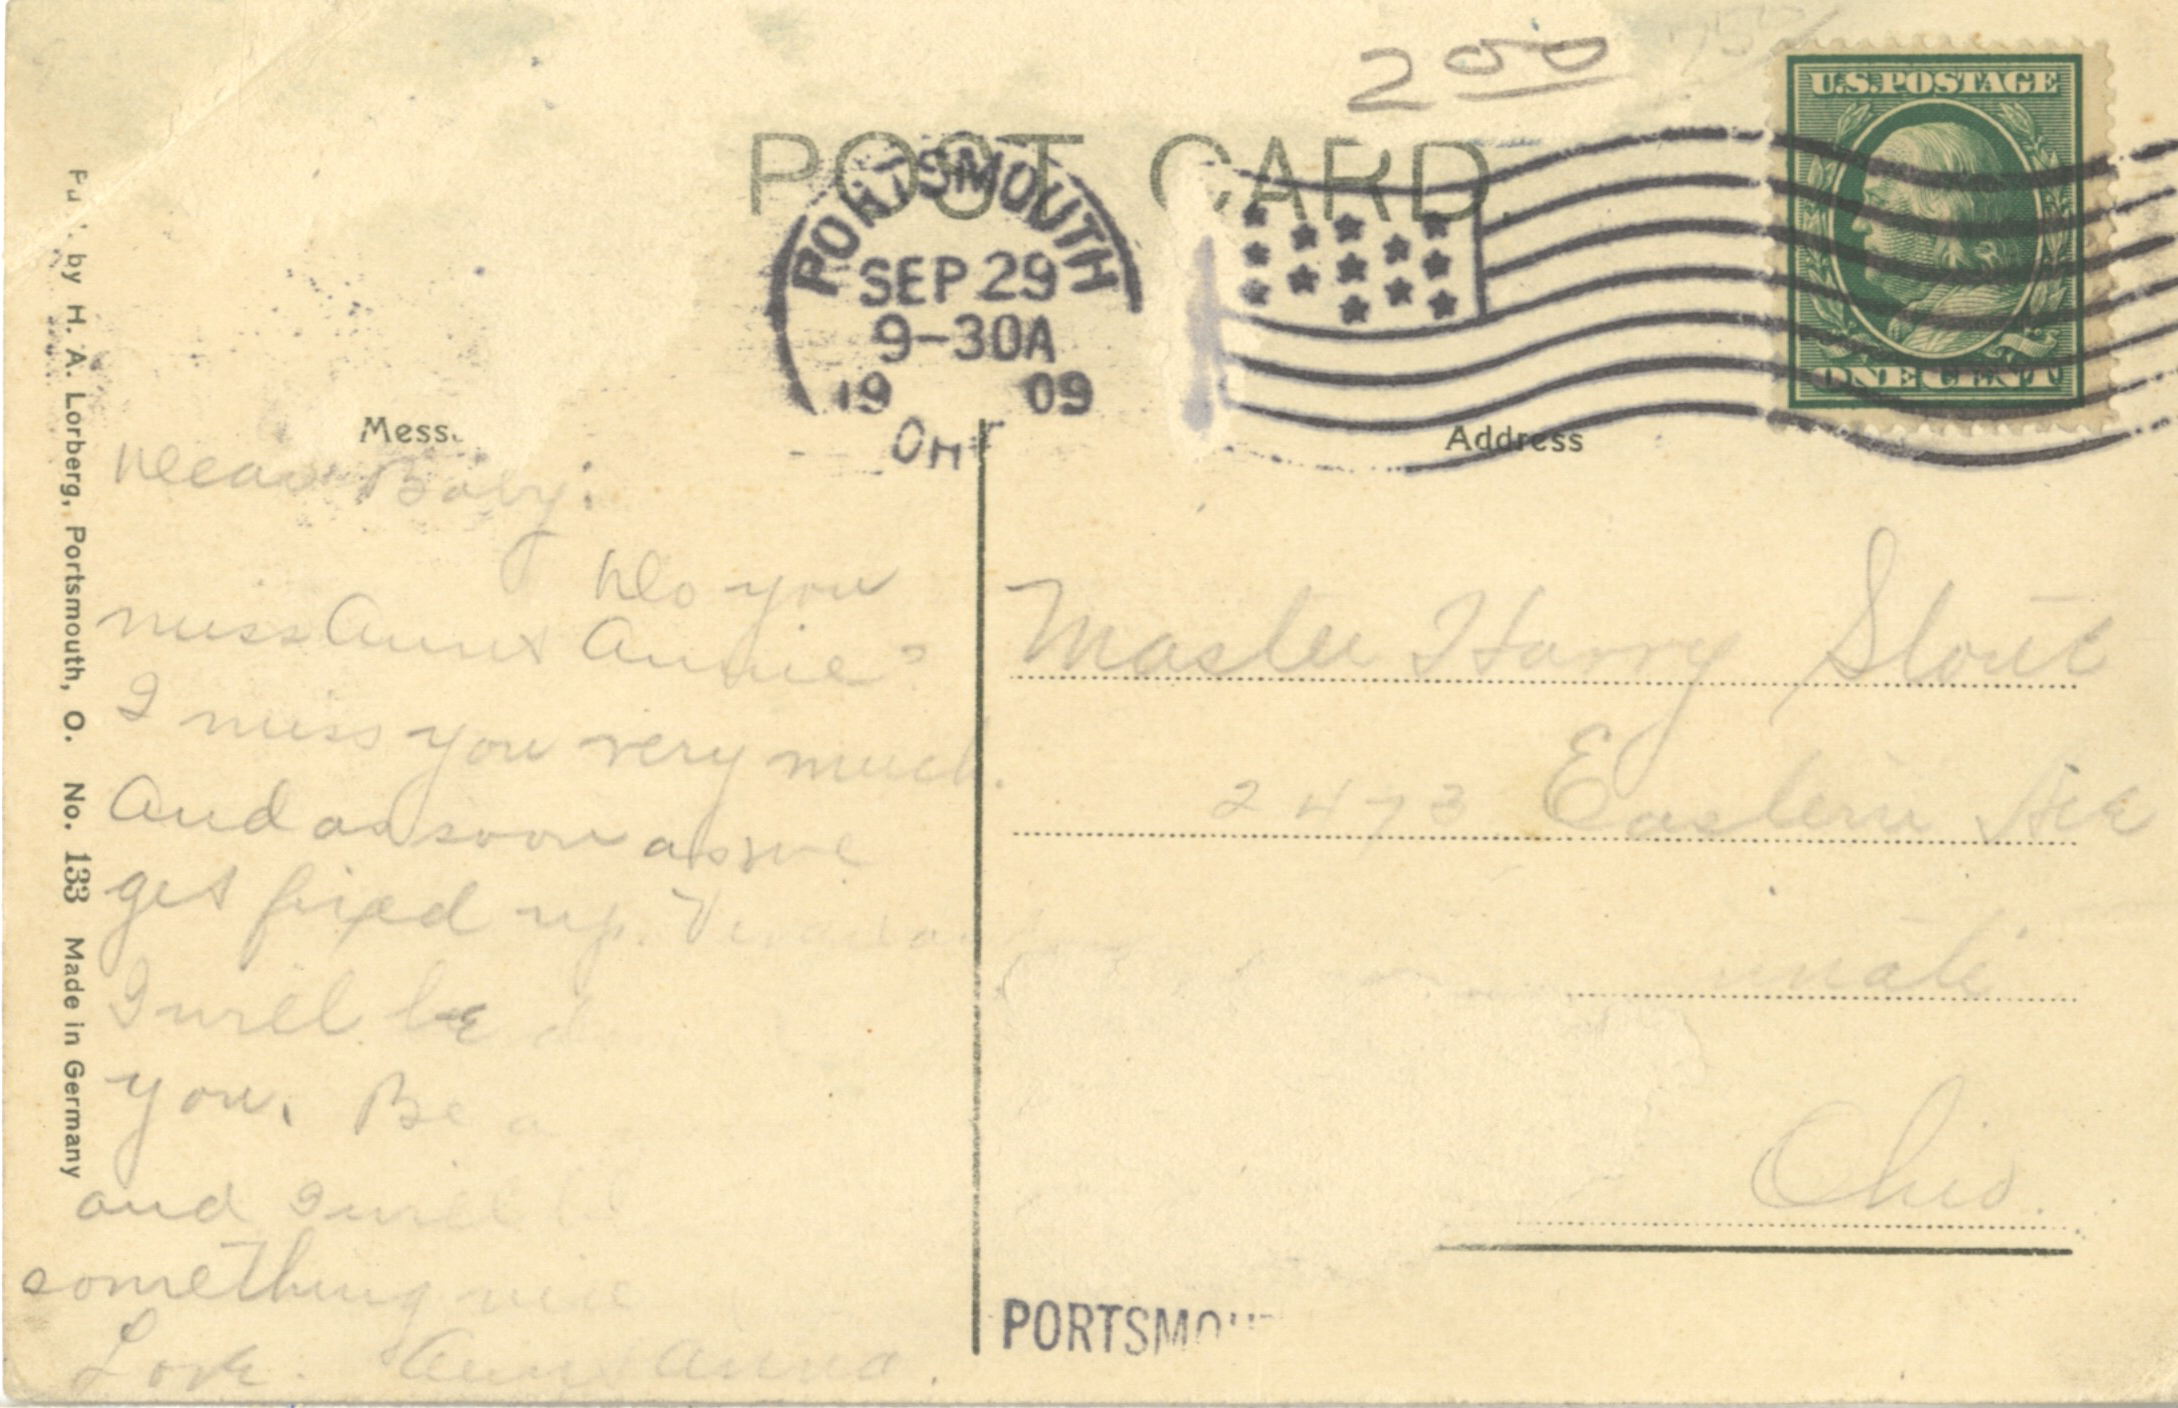 2 00
U.S. POSTAGE
ONE CENT
POST CARD.
PORTSMOUTH
SEP 29
9-30A
19 09
OH
by H. A. Lorberg, Portsmouth, O. No. 133 Made in Germany
Address
Dear Baby:
Do you
miss Aunt Annie?
I miss you very much.
And as soon as we
get fixed up
I will be
you. Be a
and I will
something nice
Love. Aunt Anna.
Master Harry Stout
2473 Eastern Ave
Ohio.